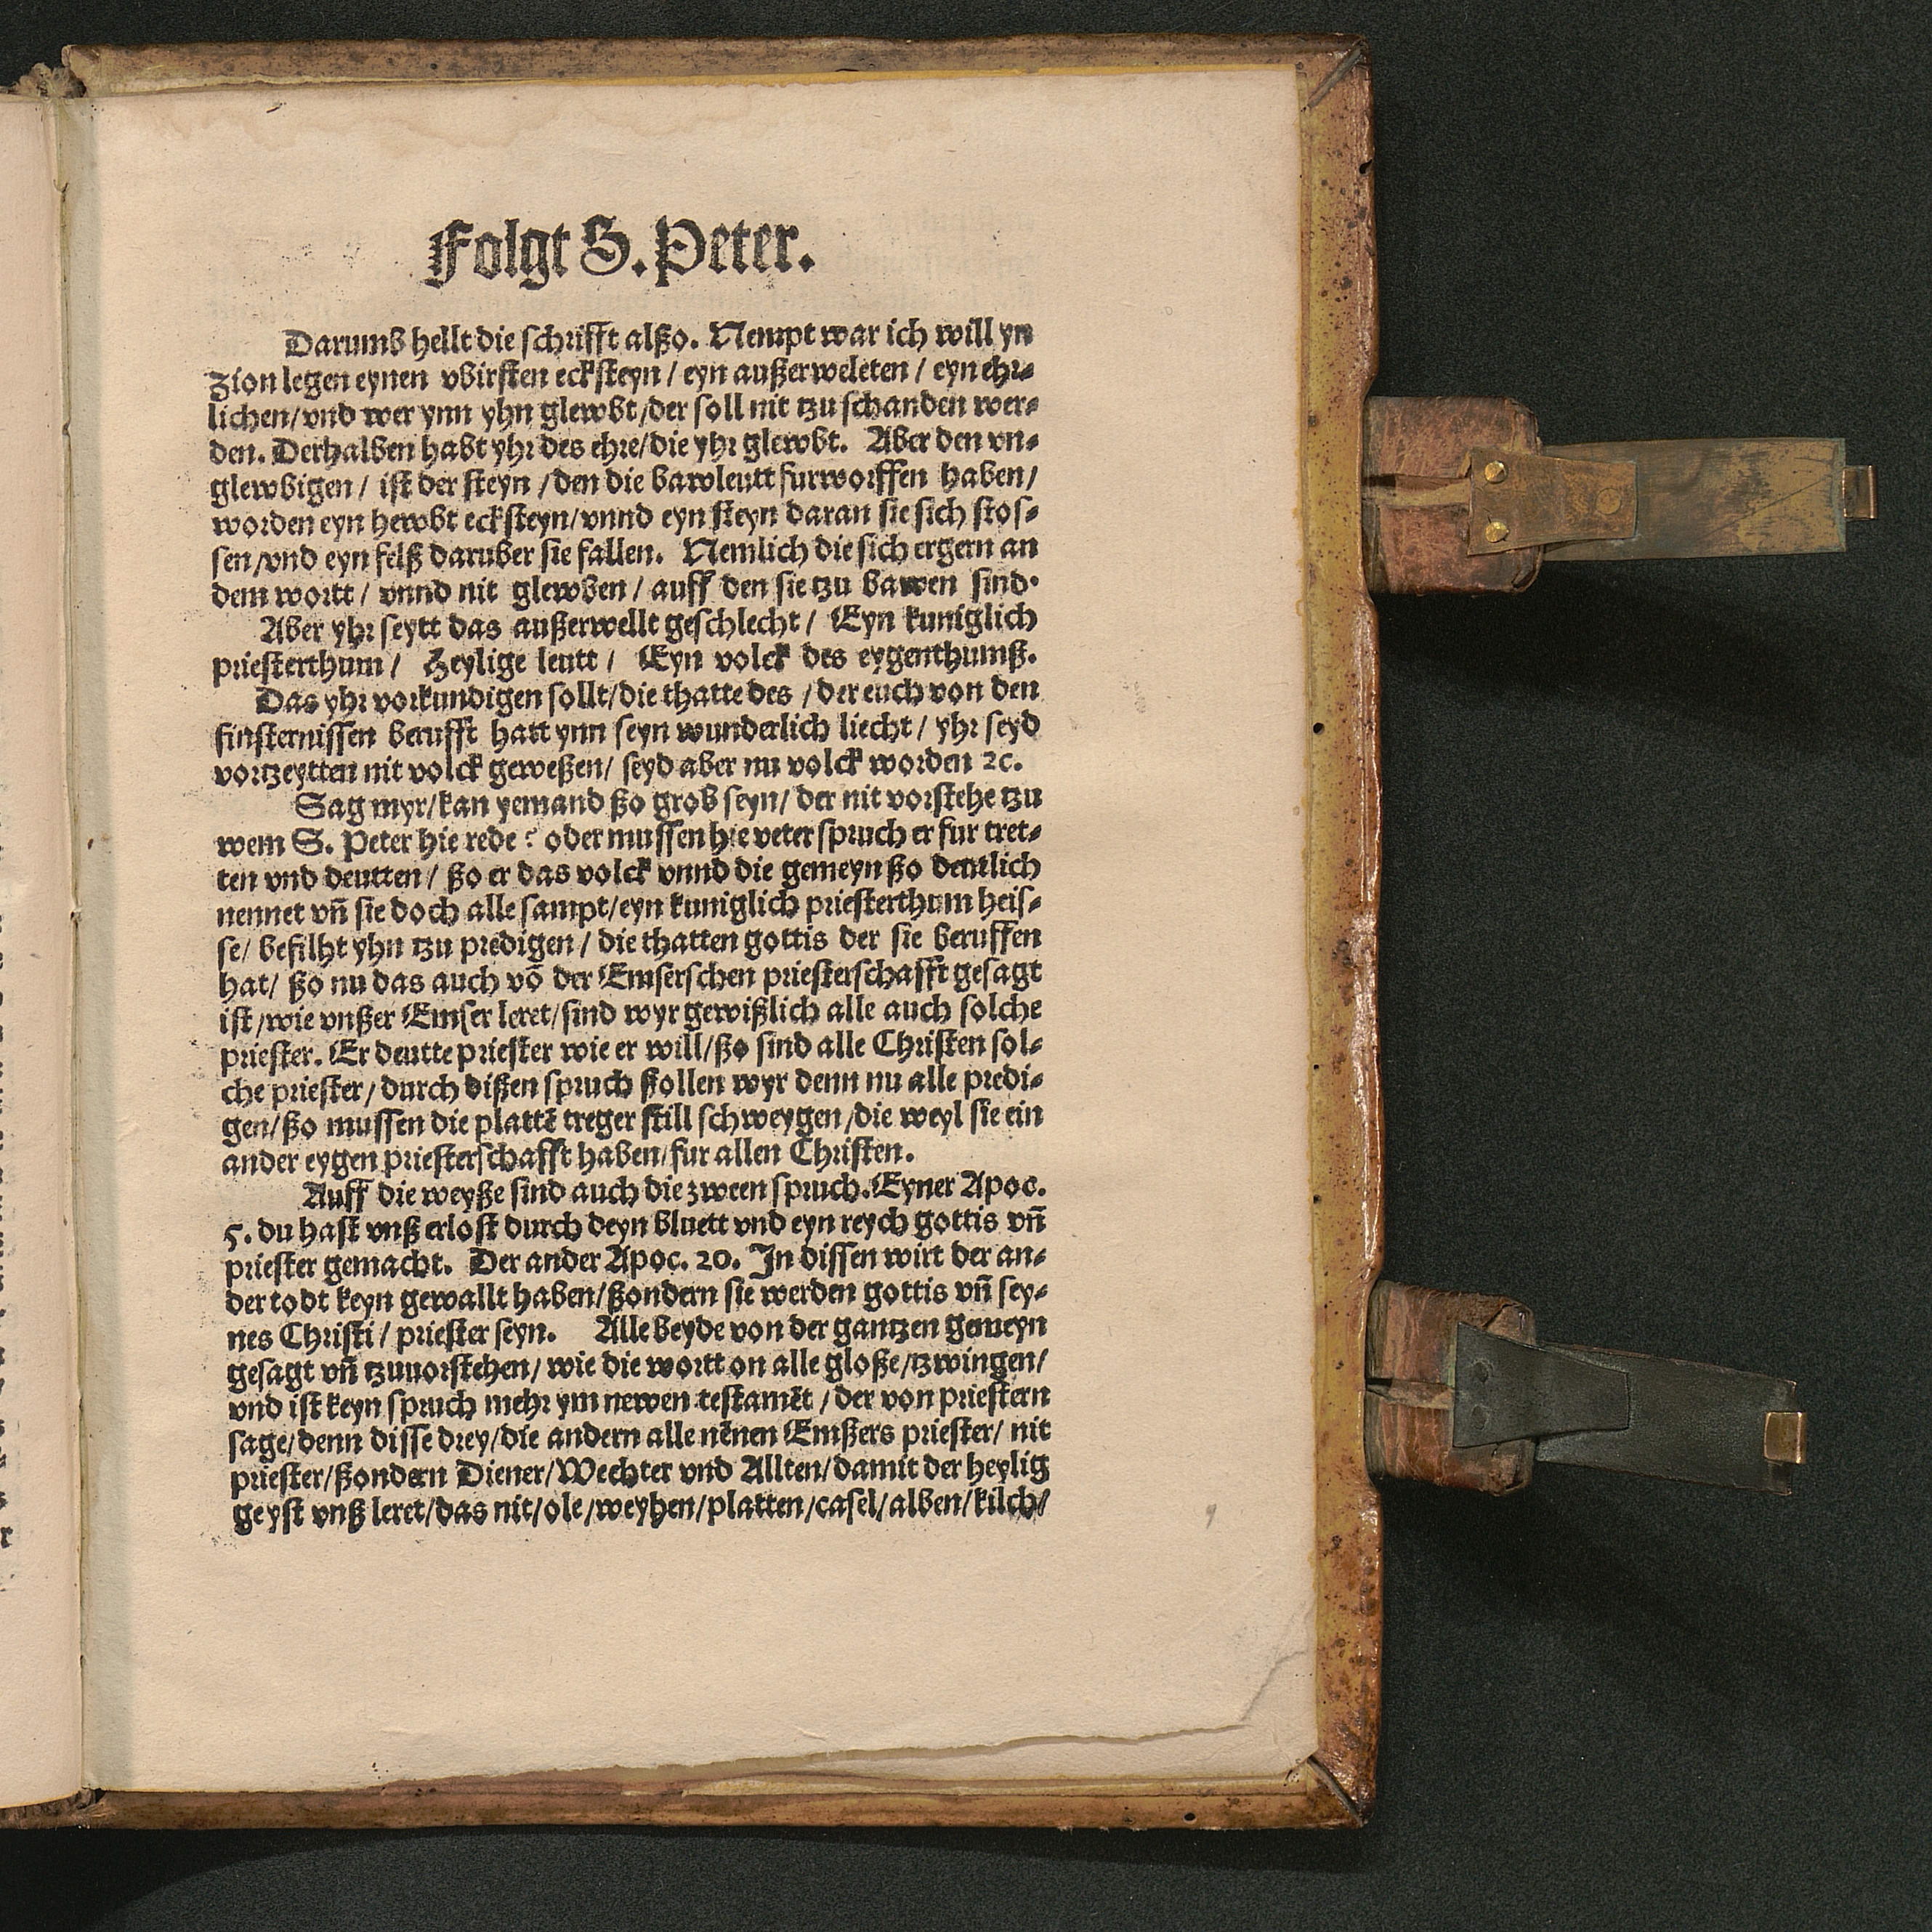 Folgt S. Peter.
Darumb hellt die schrifft alßo. Nempt war ich will yn
Zion legen eynen vbirsten ecksteyn / eyn außerweleten / eyn ehr⸗
lichen/ vnd wer ynn yhn glewbt /der soll nit tzu schanden wer⸗
den. Derhalben habt yhr des ehre/die yhr glewbt. Aber den vn⸗
glewbigen / ist der steyn /den die bawleutt furworffen haben/
worden eyn hewbt ecksteyn/vnnd eyn steyn daran sie sich stos⸗
sen/vnd eyn felß daruber sie fallen. Nemlich die sich ergern an
dem wortt / vnnd nit glewben / auff den sie tzu bawen sind.
Aber yhr seytt das außerwellt geschlecht / Eyn kuniglich
priesterthum / Heylige leutt / Eyn volck des eygenthumß.
Das yhr vorkundigen sollt/die thatte des /der euch von den
finsternissen berufft hatt ynn seyn wunderlich liecht / yhr seyd
vortzeytten nit volck geweßen/ seyd aber nu volck worden ꝛc.
Sag myr/kan yemand ßo grob seyn/ der nit vorstehe tzu
wem S. Peter hie rede? oder mussen hie veter spruch er fur tret⸗
ten vnd deutten / ßo er das volck vnnd die gemeyn ßo deutlich
nennet vn̄ sie doch alle sampt/eyn kuniglich priesterthum heis⸗
se/ befilht yhn tzu predigen / die thatten gottis der sie beruffen
hat/ ßo nu das auch vō der Emserschen priesterschafft gesagt
ist /wie vnßer Emser leret/sind wyr gewißlich alle auch solche
priester. Er deutte priester wie er will/ßo sind alle Christen sol⸗
che priester/ durch dißen spruch ßollen wyr denn nu alle predi⸗
gen/ßo mussen die plattē treger still schweygen /die weyl sie ein
ander eygen priesterschafft haben/fur allen Christen.
Auff die weyße sind auch die zween spruch. Eyner Apoc.
5. du hast vnß erlost durch deyn bluett vnd eyn reych gottis vn̄
priester gemacht. Der ander Apoc. 20. In dissen wirt der an⸗
der todt keyn gewallt haben/ßondern sie werden gottis vn̄ sey⸗
nes Christi / priester seyn. Alle beyde von der gantzen gemeyn
gesagt vn̄ tzuuorstehen/ wie die wortt on alle gloße/tzwingen/
vnd ist keyn spruch mehr ym newen testamēt / der von priestern
sage/denn disse drey/die andern alle nēnen Emßers priester/ nit
priester/ßondern Diener/Wechter vnd Allten/damit der heylig
geyst vnß leret/das nit/ole/weyhen/platten/casel/alben/kilch/